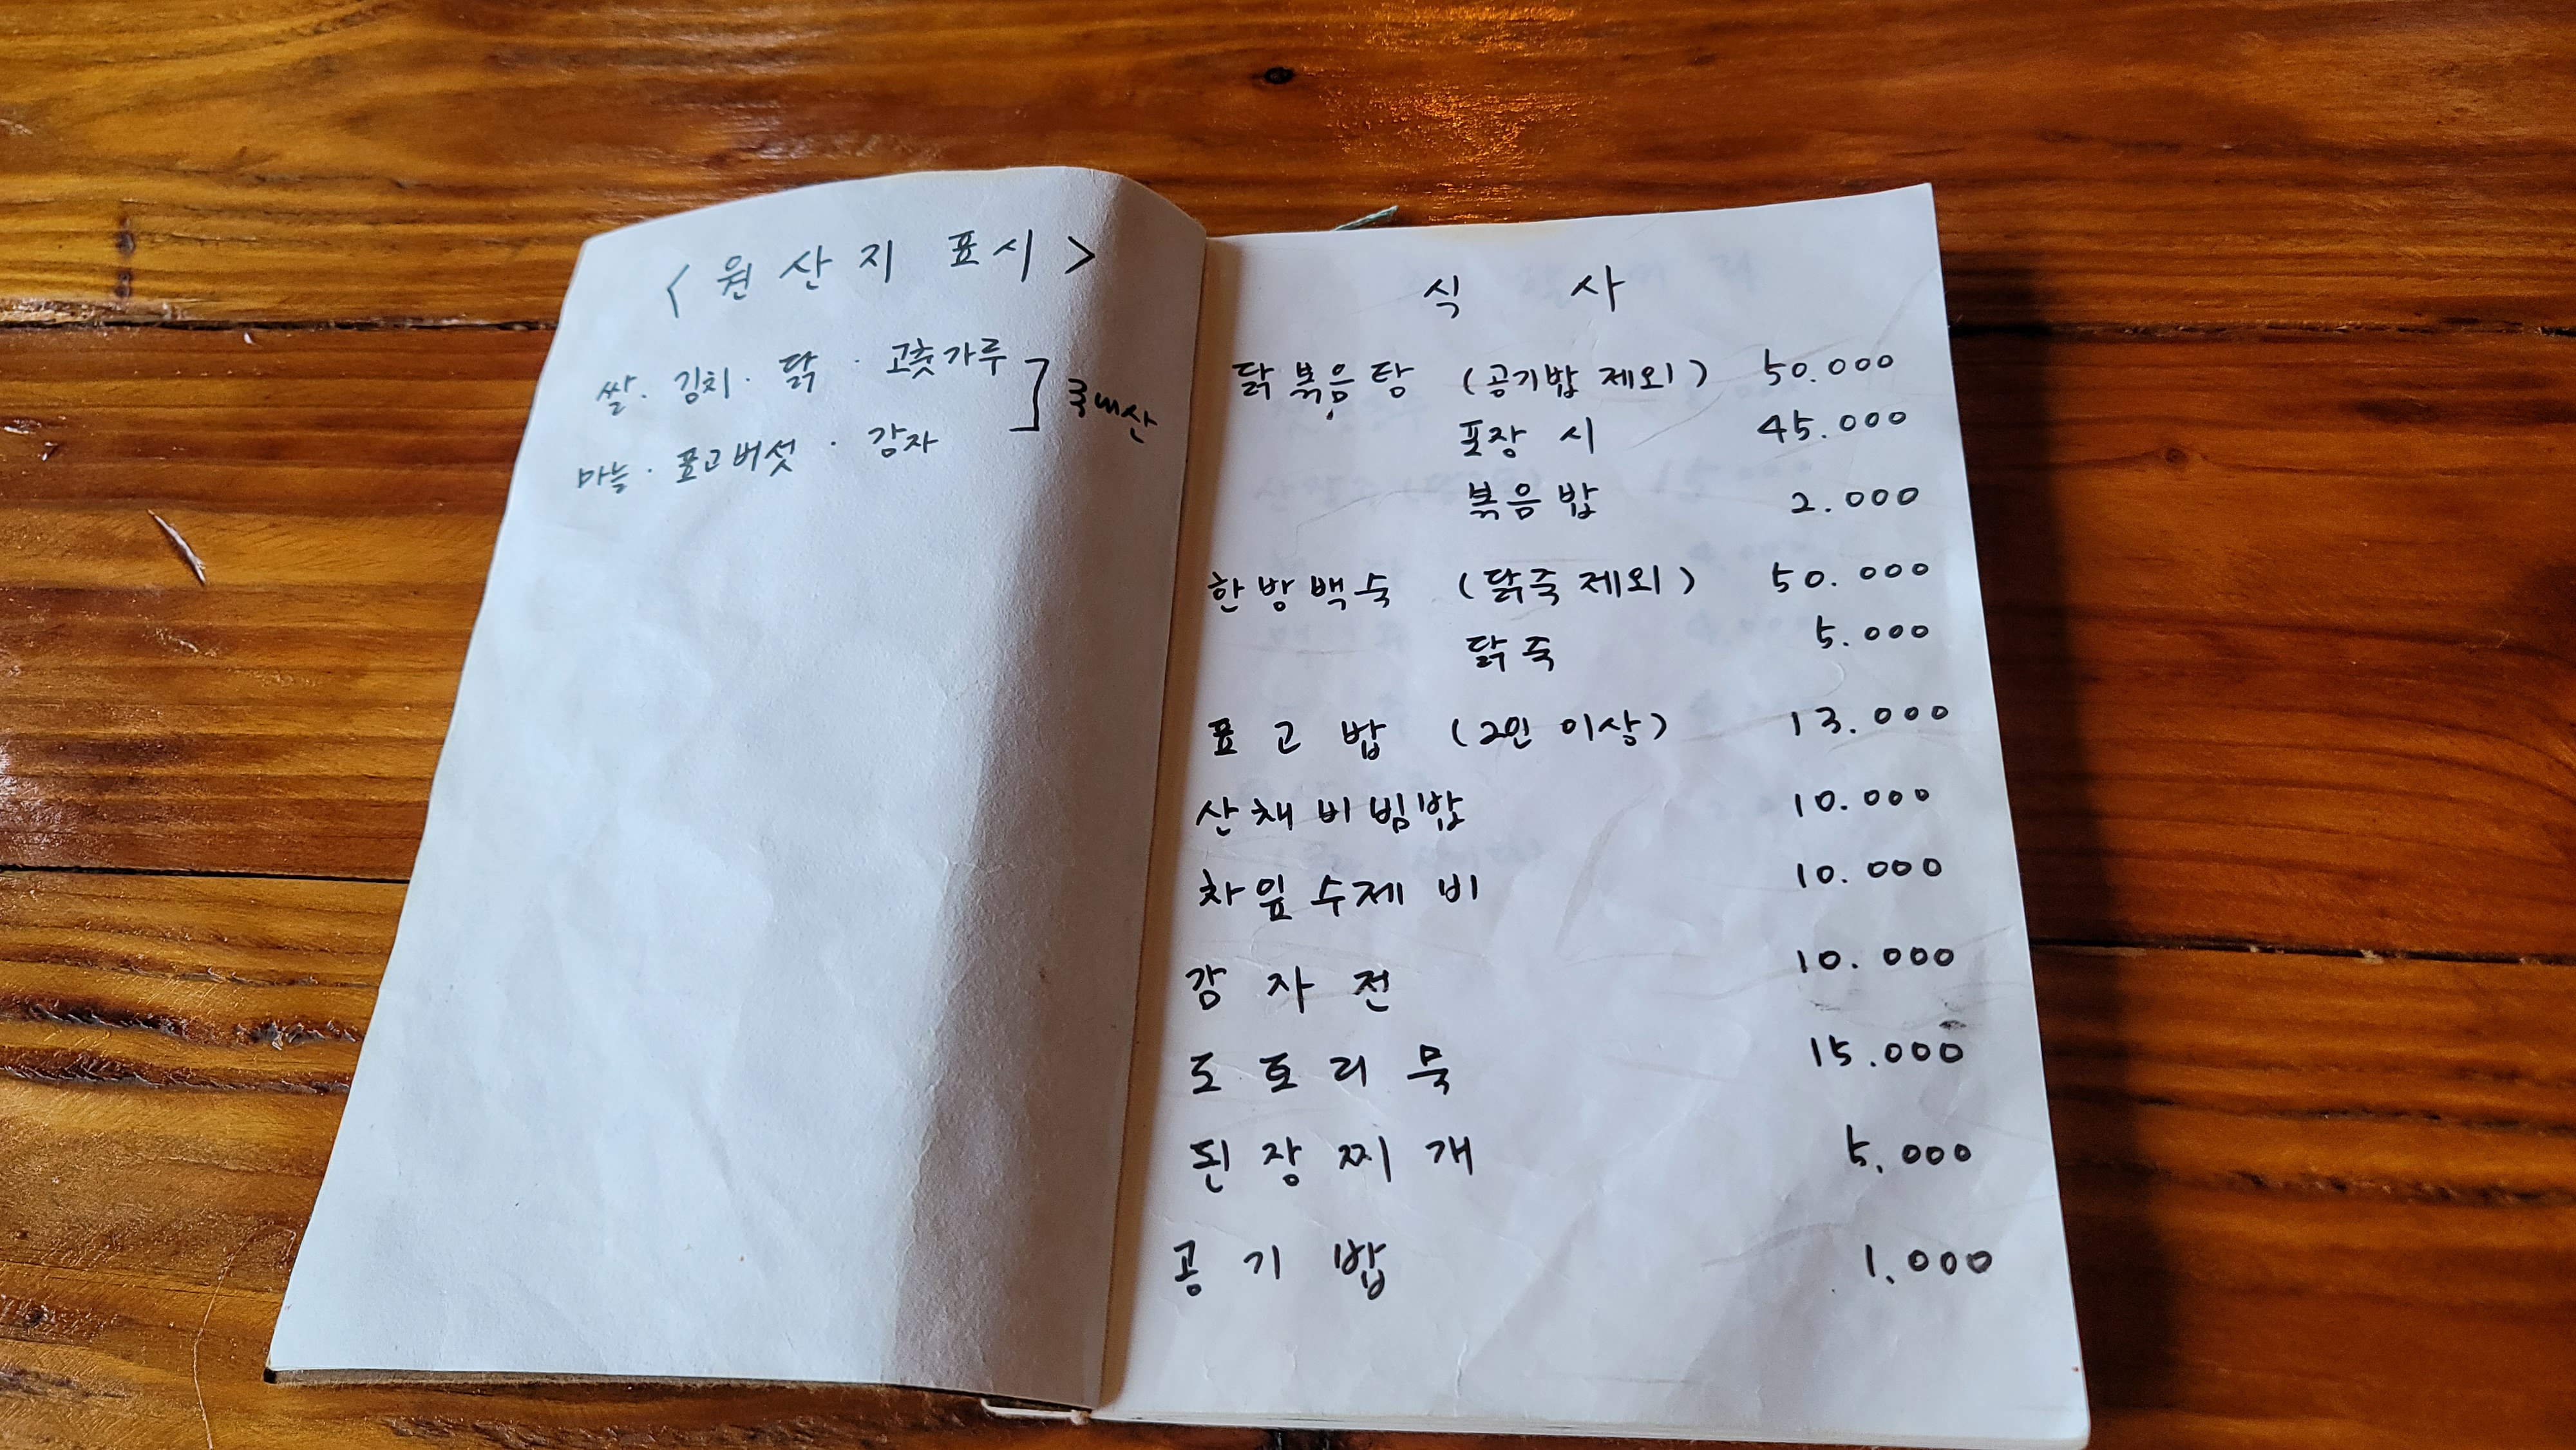 < 원산지 표시 >
쌀. 김치. 닭. 고춧가루
마늘. 표고버섯. 감자
] 국내산
식 사
닭볶음탕 (공기밥 제외) 50.000
포장 시 45.000
볶음밥 2.000
한방백숙 (닭죽 제외) 50.000
닭죽 5.000
표 고 밥 (2인 이상) 13.000
산채비빔밥 10.000
차잎수제비 10.000
감 자 전 10.000
도 토 리 묵 15.000
된 장 찌 개 5.000
공 기 밥 1.000